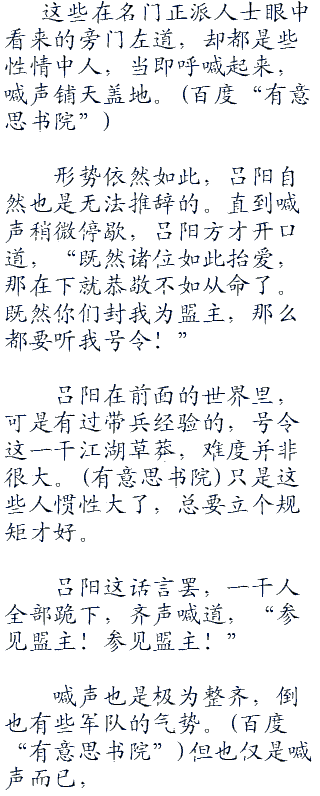 这些在名门正派人士眼中
看来的旁门左道，却都是些
性情中人，当即呼喊起来，
喊声铺天盖地。(百度“有意
思书院”)
形势依然如此，吕阳自
然也是无法推辞的。直到喊
声稍微停歇，吕阳方才开口
道，“既然诸位如此抬爱，
那在下就恭敬不如从命了。
既然你们封我为盟主，那么
都要听我号令！”
吕阳在前面的世界里，
可是有过带兵经验的，号令
这一干江湖草莽，难度并非
很大。(有意思书院)只是这
些人惯性大了，总要立个规
矩才好。
吕阳这话言罢，一干人
全部跪下，齐声喊道，“参
见盟主！参见盟主！”
喊声也是极为整齐，倒
也有些军队的气势。(百度
“有意思书院”)但也仅是喊
声而已，